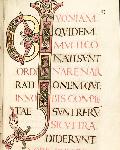 QUONIAM
QUIDEM
MULTI CO
NATI SUNT
ORDINARE NAR
RATIONEM QUE
IN NOBIS COMPLE
TAE SUNT RERU
SICUT TRA
DIDERUNT